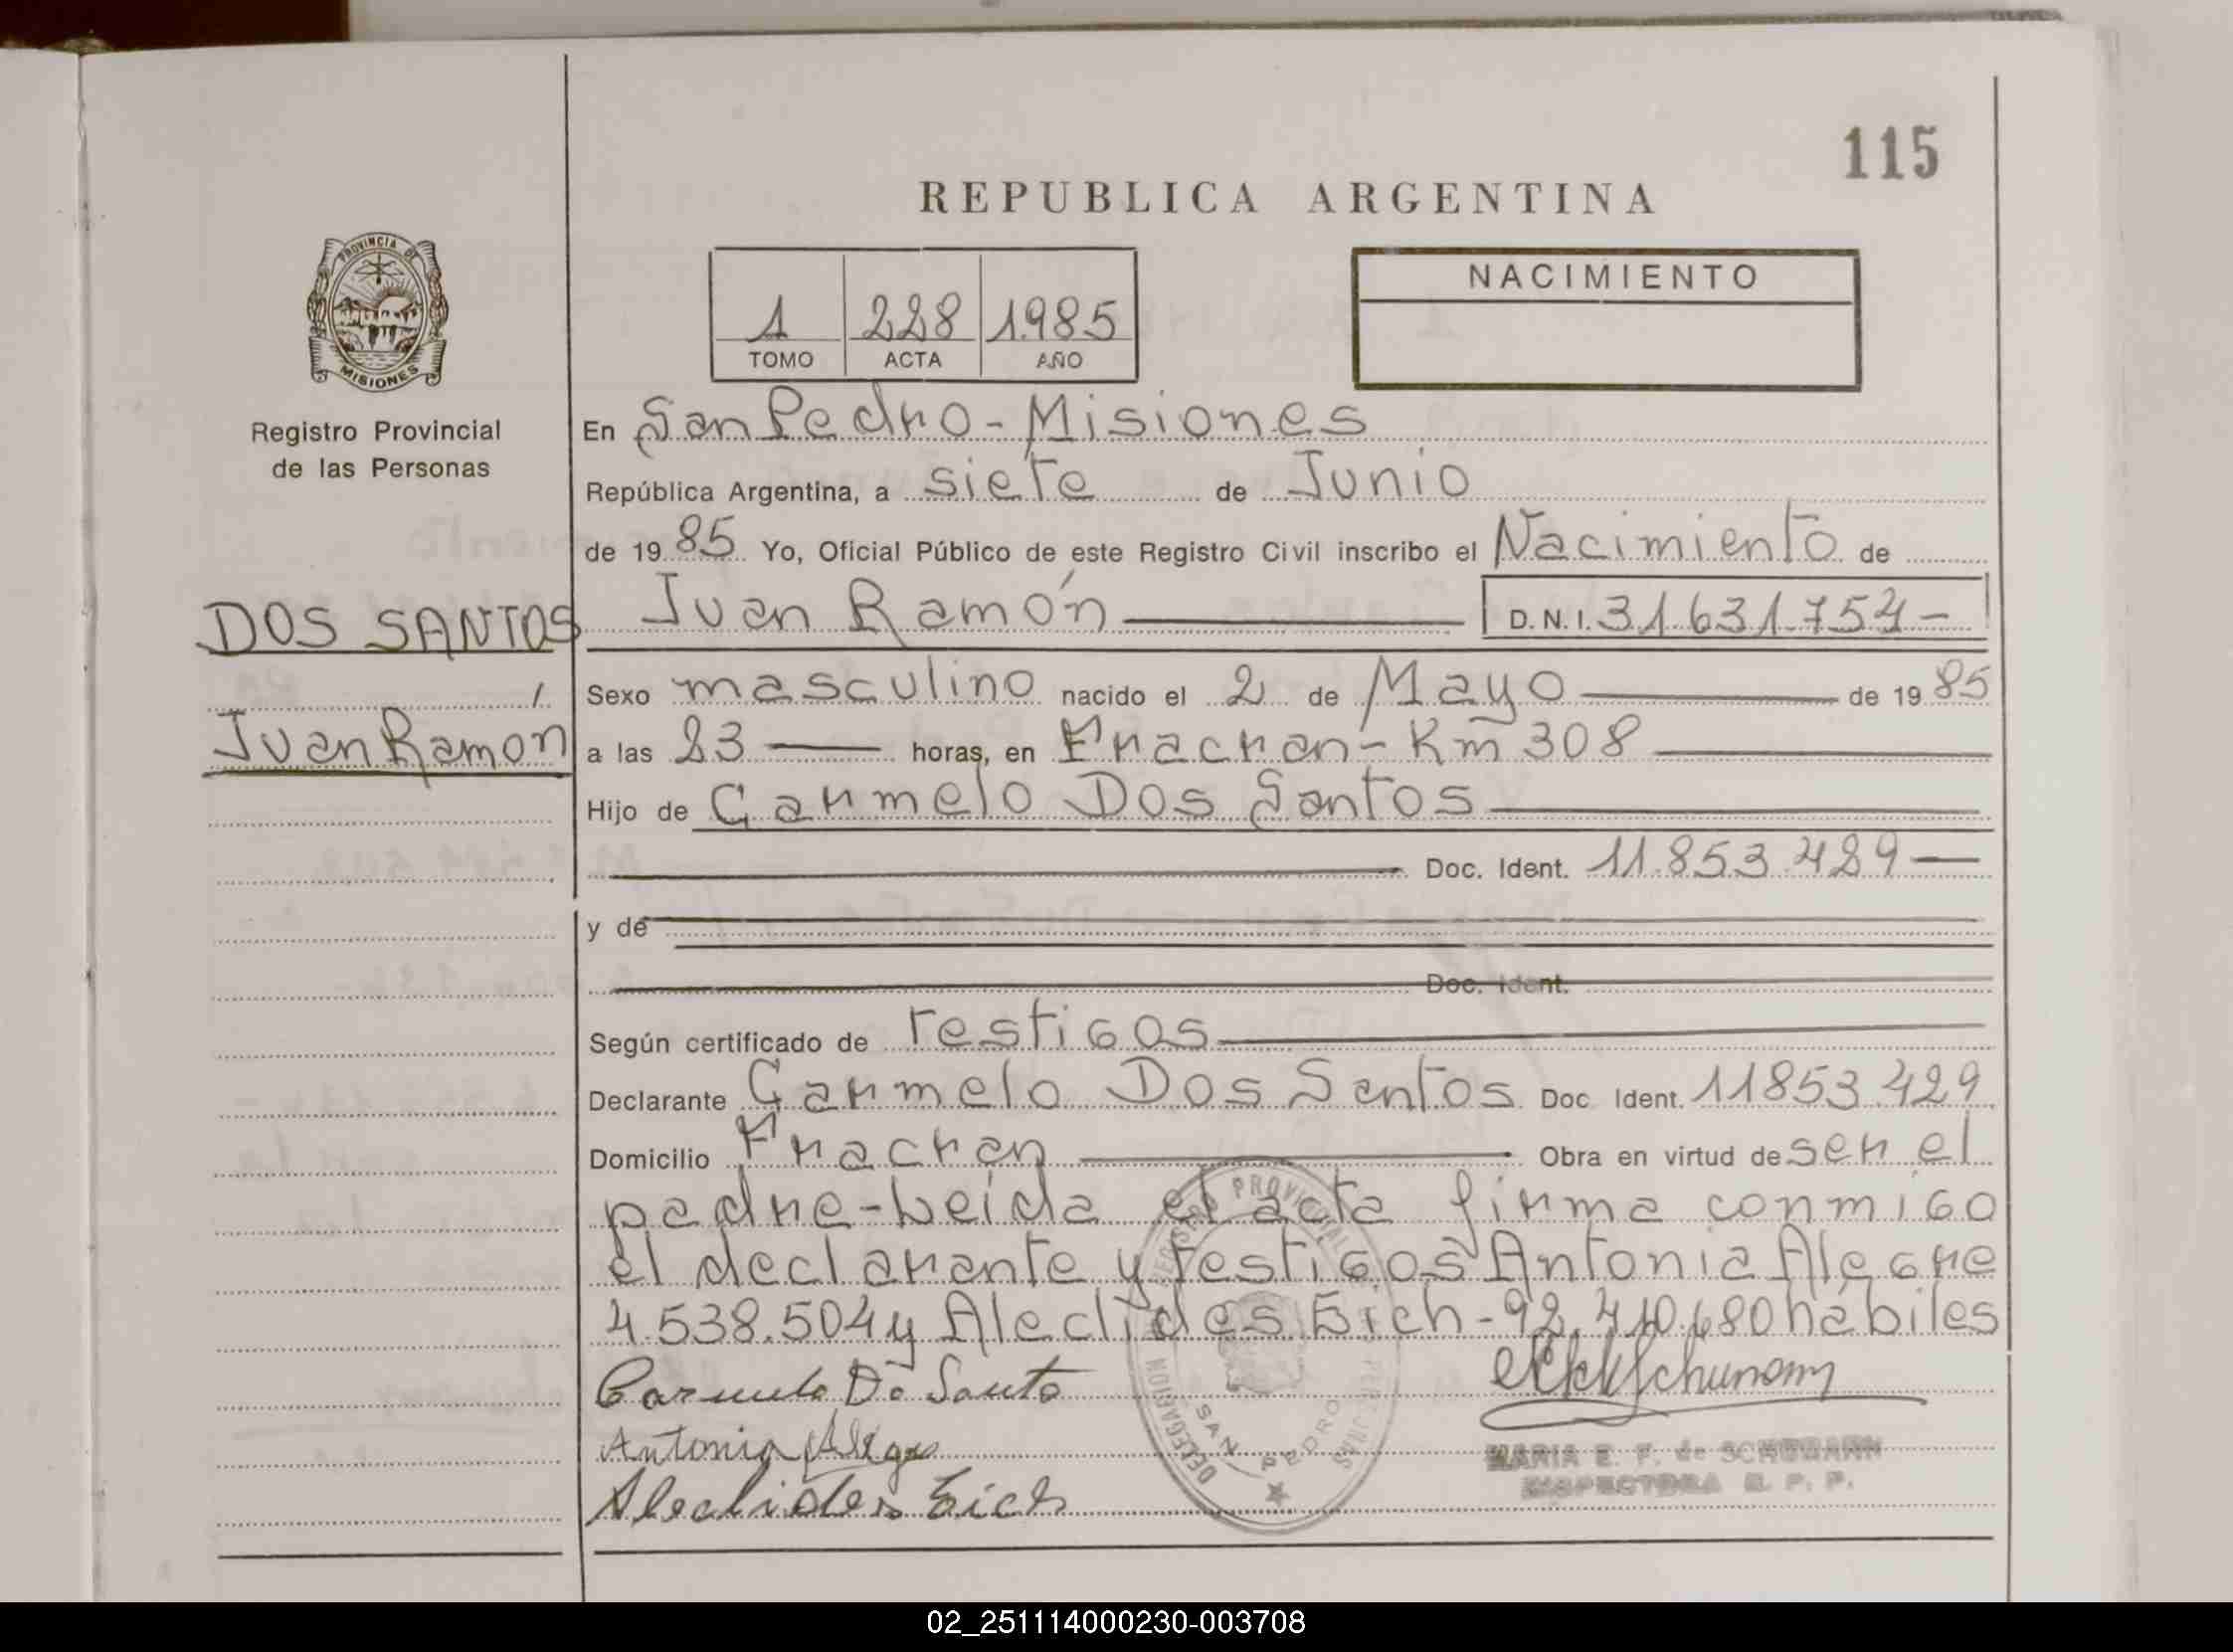 115
REPUBLICA ARGENTINA
PROVINCIA DE
MISIONES
Registro Provincial
de las Personas
1 228 1985
TOMO ACTA AÑO
NACIMIENTO
En San Pedro - Misiones
República Argentina, a siete de Junio
de 19 85 Yo, Oficial Público de este Registro Civil inscribo el Nacimiento de
DOS SANTOS
Juan Ramón
Juan Ramón D.N.I. 31.631.754-
Sexo masculino nacido el 2 de Mayo de 19 85
a las 23 horas, en Fracran - Km 308
Hijo de Carmelo Dos Santos
Doc. Ident. 11.853.429
y de
Doc. Ident.
Según certificado de Testigos
Declarante Carmelo Dos Santos Doc. Ident. 11853.429
Domicilio Fracran Obra en virtud de ser el
padre - Leída el acta firma conmigo
el declarante y testigos Antonia Alegre
4.538.504 y Aleclides Eich - 92.410.680 hábiles
Carmelo Do Santo
Antonia
Aleclides Eich
REGISTRO PROVINCIAL DE PERSONAS
DELEGACION
SAN PEDRO
MARIA E. F. de SCHUMANN
INSPECTORA R. P. P.
02_251114000230-003708